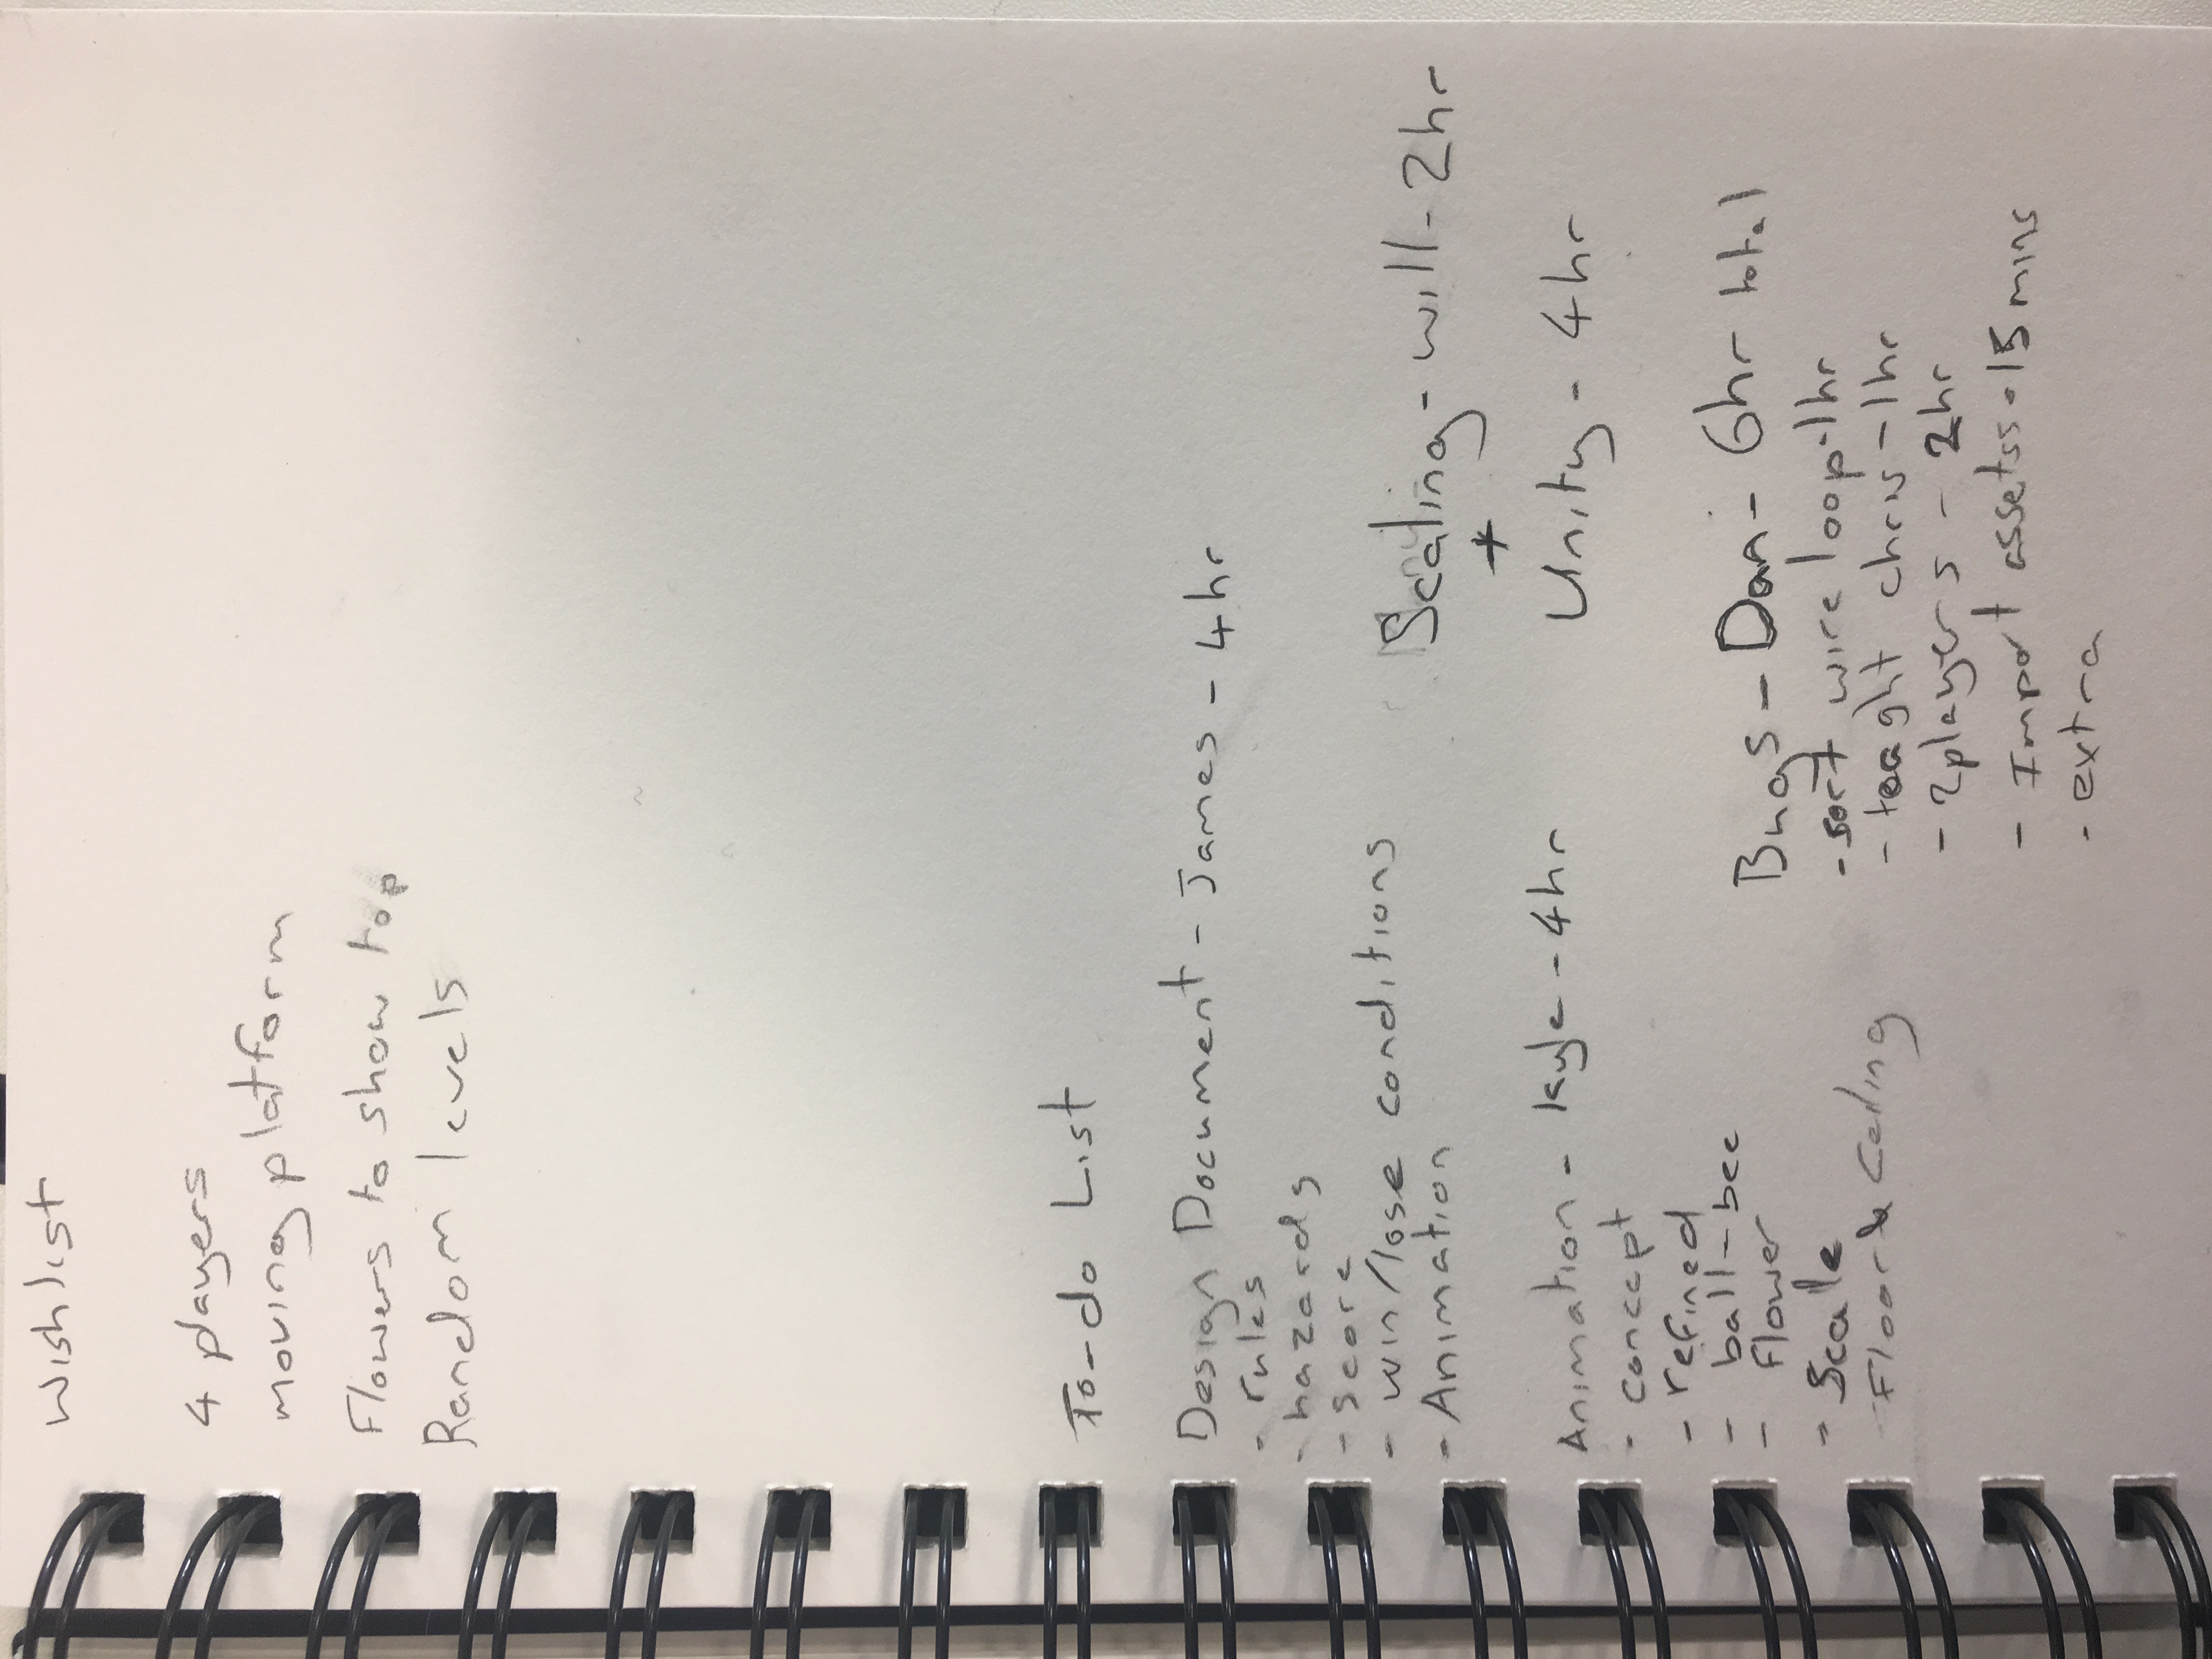 Wishlist
4 players
moving platform
Flowers to show top
Random levels
To-do List
Design Document - James - 4hr
- rules
- hazards
- score
- win/lose conditions
- Animation
Animation - Kyle - 4hr
- concept
- refined
- ball-bee
- flower
- Scale
- Floor & Ceiling
Scaling - will - 2hr
+
Unity - 4hr
Bugs - Dan - 6hr total
- sort wire loop - 1hr
- taught chris - 1hr
- 2players - 2hr
- Import assetss - 15 mins
- extra